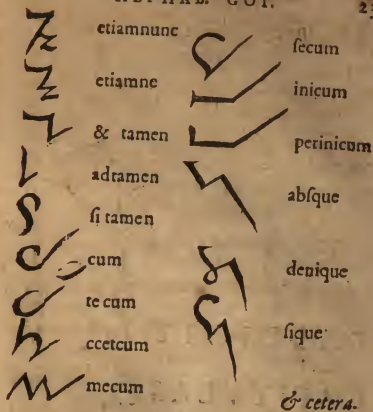 ALPHAB. GOT. 23
etiamnunc
etiamne
& tamen
adtamen
ſi tamen
cum
te cum
ccetcum
mecum
ſecum
inicum
perinicum
abſque
denique
ſique
& cetera.